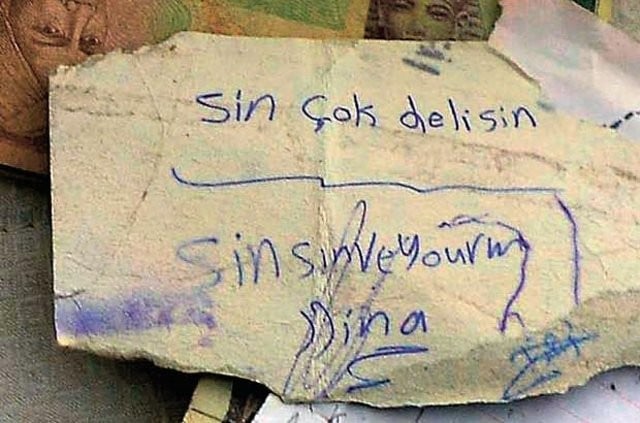 Sin çok delisin
Sin sinveyourm
Dina